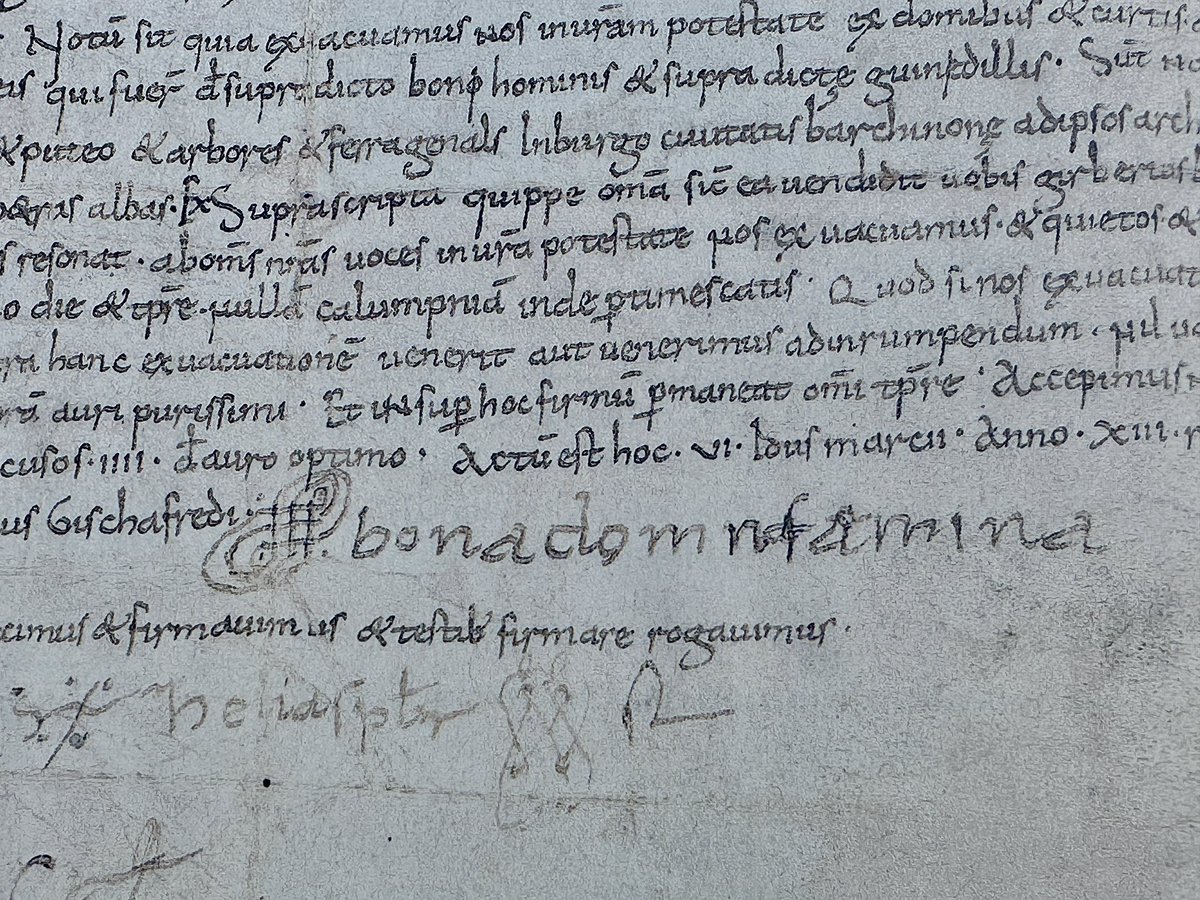 Notū sit quia exuacuamus nos in urām potestate ex domibus & curtis
qui fuer̄ de supra dicto bonꝑ hominis & supra dictę guinedillis. Sūt
& puteo & arbores & ferragenals In burgo ciuitatis barchinonę ad ipsos arch
albas. Suprascripta quippe om̄a sic̄ ea uendidit uobis girbertus
s resonat. ab om̄s nr̄as uoces in ur̄a potestate nos exuacuamus. & quietos &
o die & tp̄re. nullā calumpniā inde ꝑtimescatis. Quod si nos exuacuat
hanc exuacuationē uenerit aut uenerimus ad inrumpendum. nil
auri purissimi. Et in suꝑ hoc firmū ꝑmaneat om̄i tp̄re. Accepimus
cusos. IIII. de auro optimo. Actū est hoc. VI. Idus marcii. Anno. XIII. r
us Gischafredi. bonadomnfamina
cimus & firmauimus & testib' firmare rogauimus.
heliaspbr